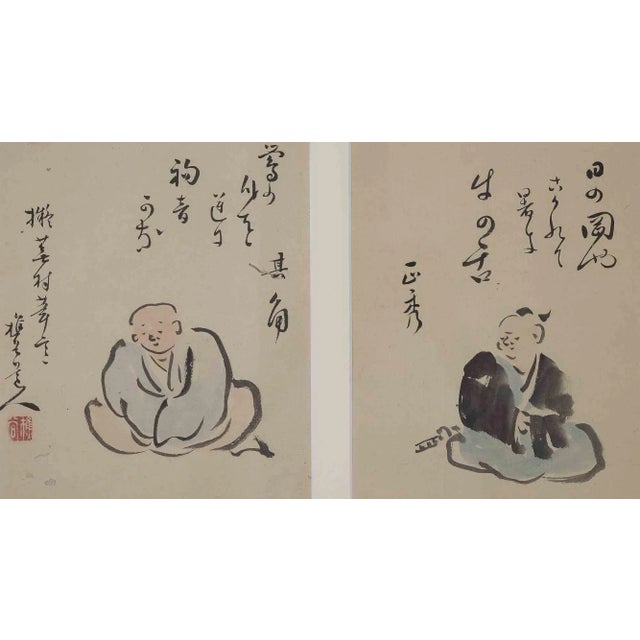 日の岡や
こかれて
暑き
牛の舌
正秀
鶯の
身を
逆に
初音
かな
其角
擬蕪村筆意
道人